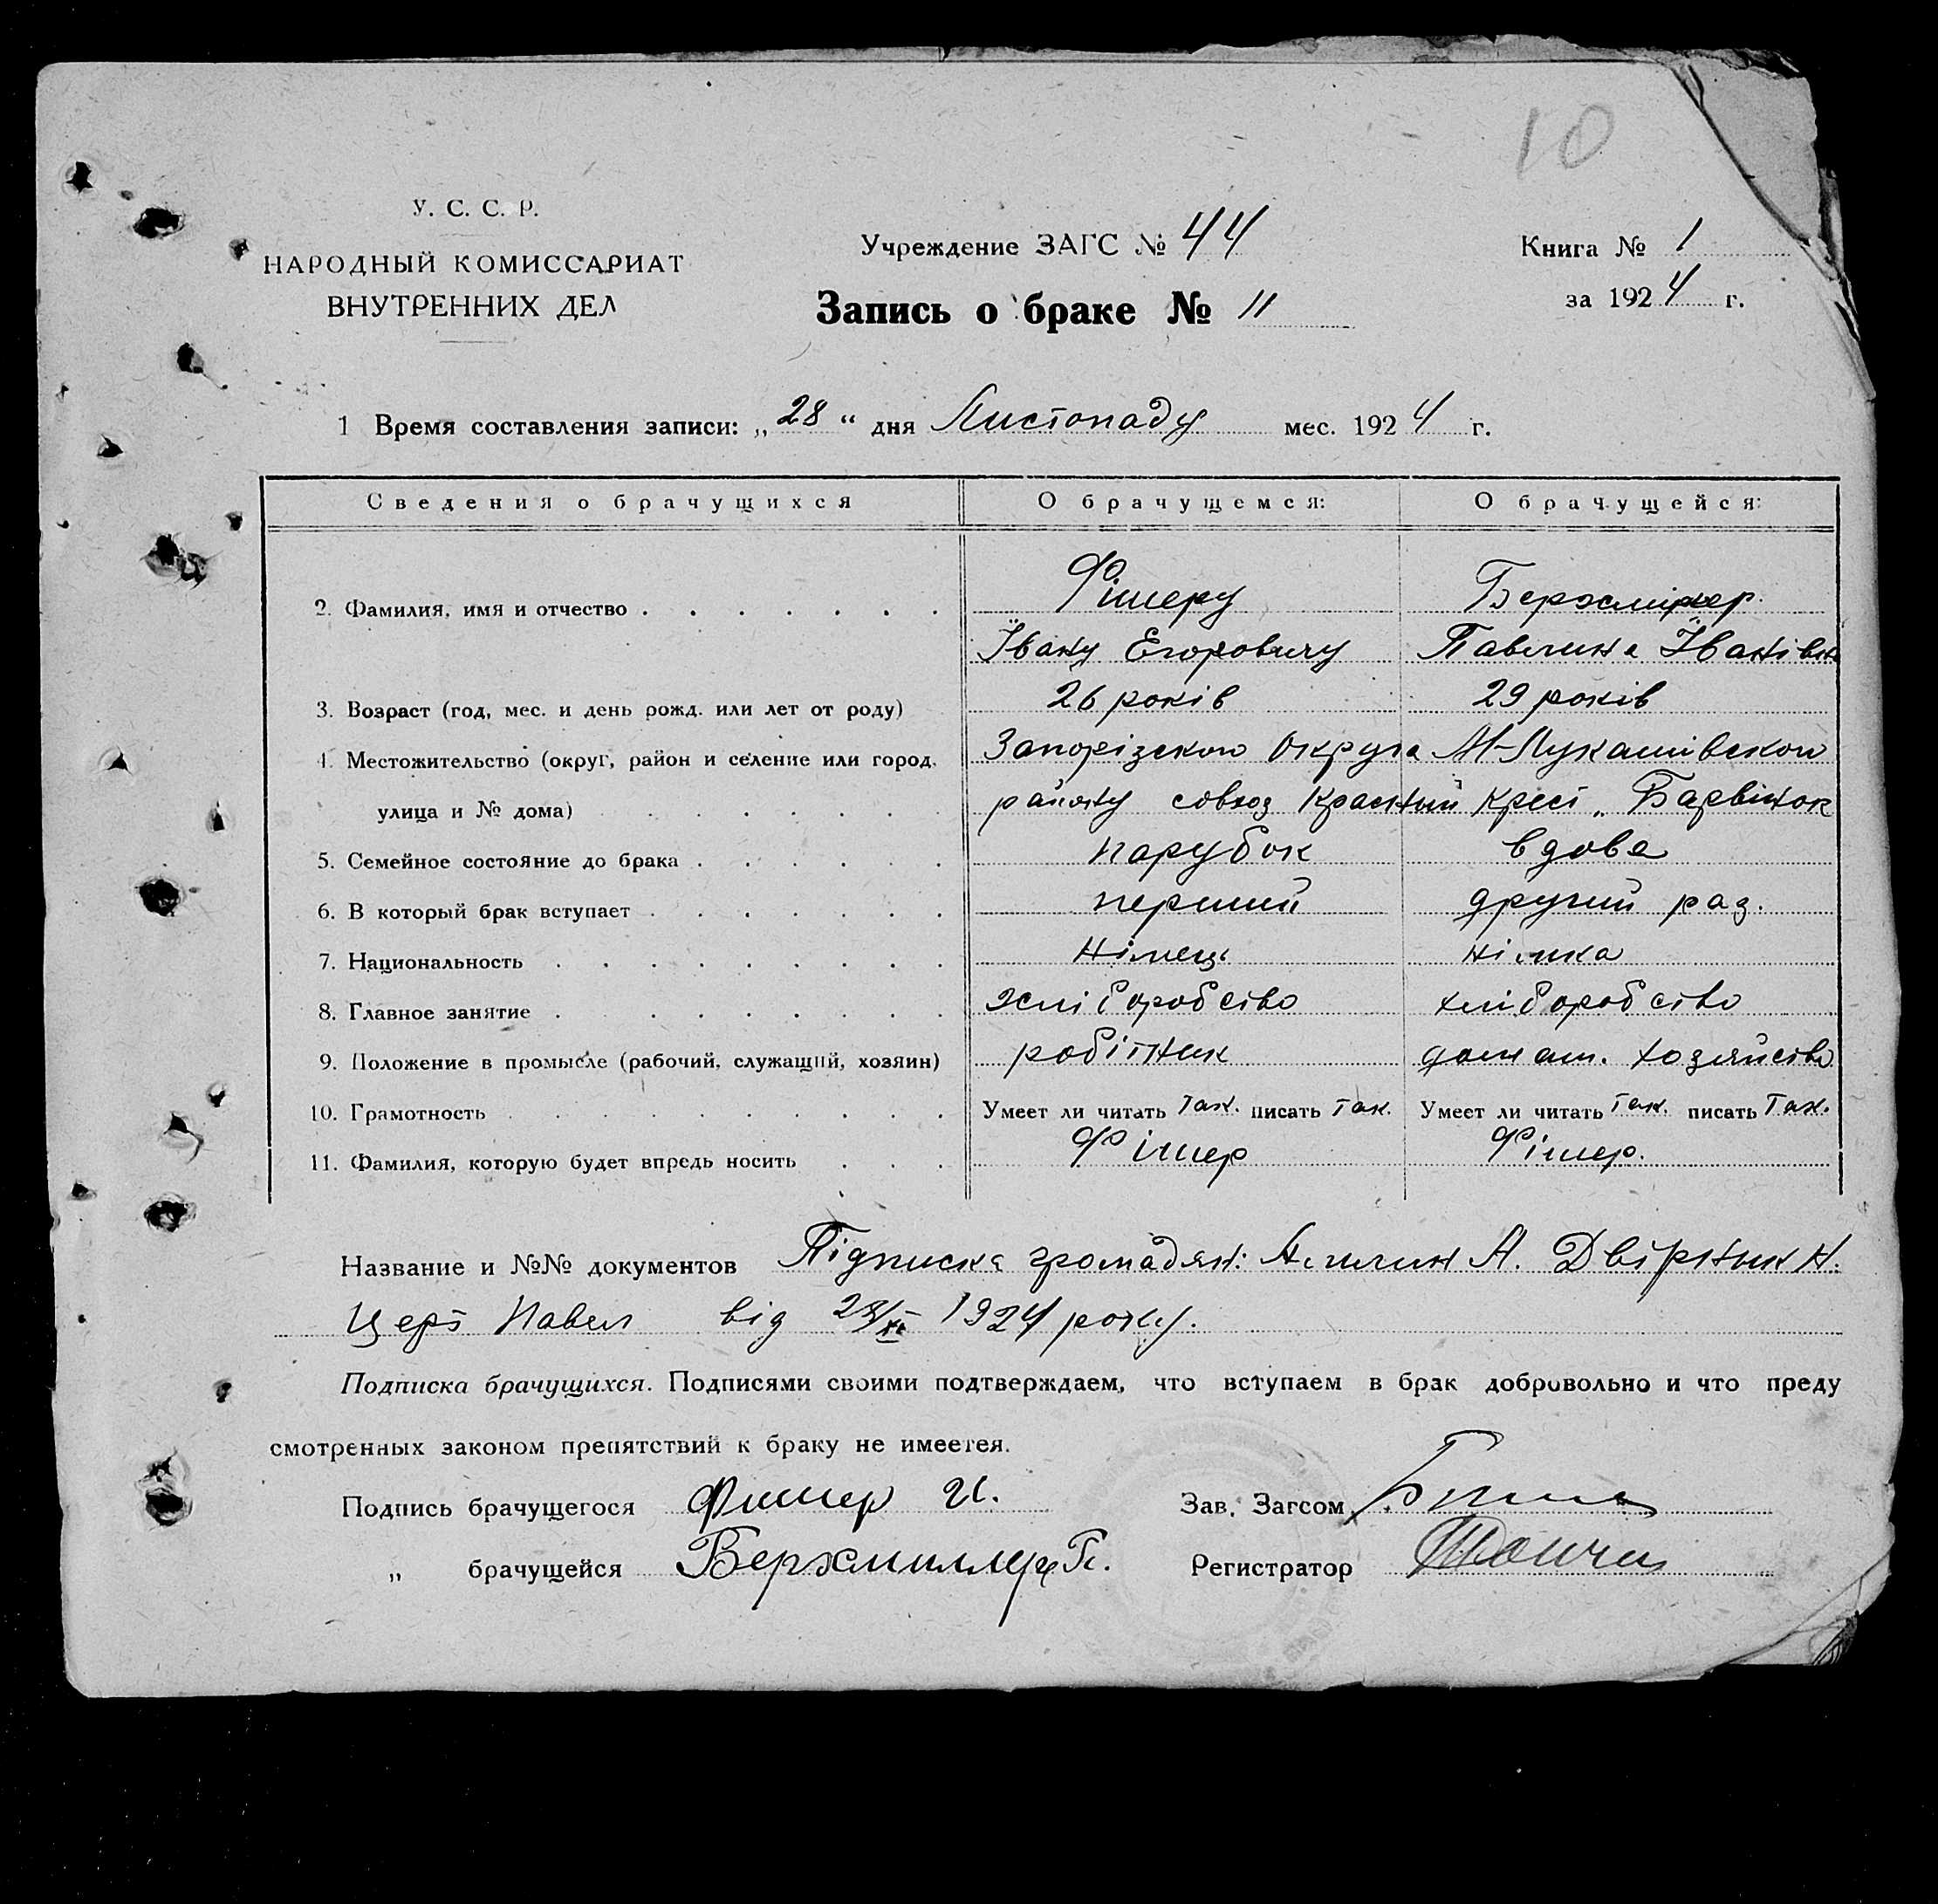 10
У. С. С. Р.
НАРОДНЫЙ КОМИССАРИАТ
ВНУТРЕННИХ ДЕЛ
Учреждение ЗАГС № 44
Запись о браке № 11
Книга № 1
за 1924 г.
1 Время составления записи: „28“ дня Листопаду мес. 1924 г.
Сведения о брачущихся О брачущемся: О брачущейся:
2. Фамилия, имя и отчество Фішеру
Івану Егоровичу Павлина Іванівна
3. Возраст (год, мес. и день рожд. или лет от роду) 26 років 29 років
4. Местожительство (округ, район и селение или город, Запорізского Округа М-Лукашівского
улица и № дома) району совхоз Красный Крест „ Барвінок
5. Семейное состояние до брака парубок вдова
6. В который брак вступает перший другий раз.
7. Национальность німець німка
8. Главное занятие хліборобство хліборобство
9. Положение в промысле (рабочий, служащий, хозяин) робітник домаш. хозяйство
10. Грамотность Умеет ли читать так. писать так. Умеет ли читать так. писать так.
11. Фамилия, которую будет впредь носить Фішер Фішер.
Название и №№ документов Підписка громадян: А. Двірник Н.
Церт Павел від 28/XI 1924 року.
Подписка брачущихся. Подписями своими подтверждаем, что вступаем в брак добровольно и что преду
смотренных законом препятствий к браку не имеется.
Подпись брачущегося Фишер И. Зав. Загсом
„ брачущейся Верхмиллер П. Регистратор